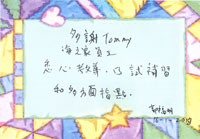 多謝 Tommy
海之家員工
悉心教導，口試補習
和多方面指點.